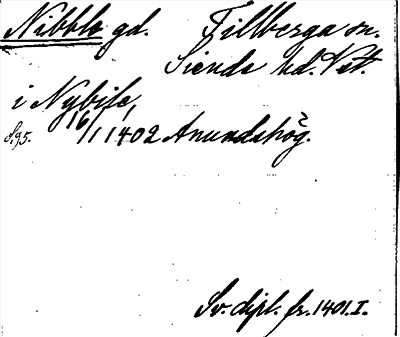 Nibble gd. Tillberga sn.
Siende hd. Vstt.
i Nybile,
S. 95. 16/1 1402 Anundshög.
Sv. dipl. fr. 1401. I.